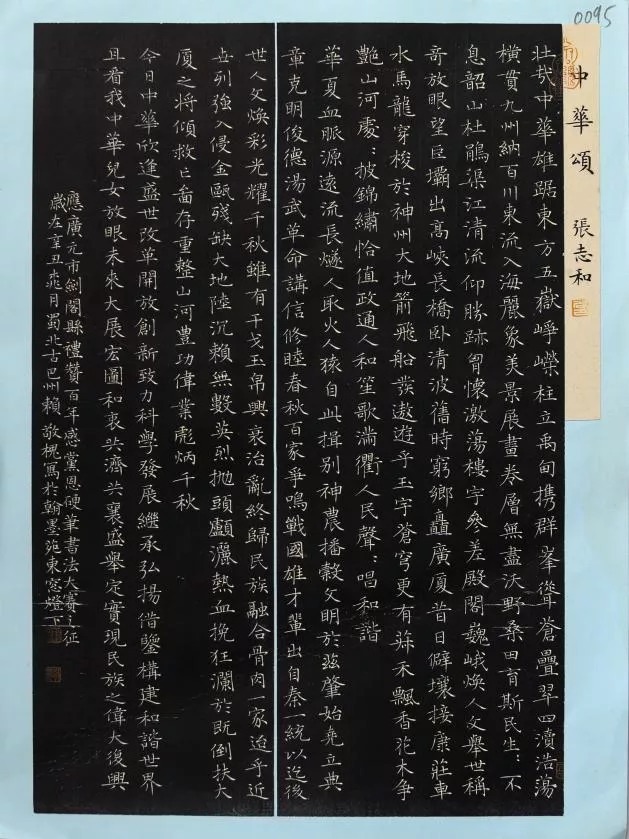 0095
中華頌 張志和
壯哉中華雄踞東方五嶽崢嶸柱立禹甸携群峯聳蒼疊翠四瀆浩蕩
橫貫九州納百川東流入海麗象美景展畫卷層無盡沃野桑田育斯民生：不
息韶山杜鵑渠江清流仰勝跡胷懷激蕩樓宇參差殿閣巍峨煥人文舉世稱
奇放眼望巨壩出高峽長橋卧清波舊時窮鄉矗廣廈昔日僻壤接康莊車
水馬龍穿梭於神州大地箭飛船發遨遊乎玉宇蒼穹更有蔴禾飄香花木争
艷山河處：披錦繡恰值政通人和笙歌満衢人民聲：唱和諧
華夏血脈源遠流長燧人取火人猿自此揖别神農播穀文明於兹肇始堯立典
章克明俊德湯武革命講信修睦春秋百家爭鳴戰國雄才輩出自秦一統以迄後
世人文煥彩光耀千秋雖有干戈玉帛興衰治亂終歸民族融合骨肉一家迨乎近
世列強入侵金甌殘缺大地陸沉賴無數英烈抛頭顱灑熱血挽狂瀾於既倒扶大
厦之将傾救亡啚存重整山河豐功偉業彪炳千秋
今日中華欣逢盛世改革開放創新致力科學發展繼承弘揚借鑒構建和諧世界
且看我中華兒女放眼未來大展宏圖和衷共濟共襄盛舉定實現民族之偉大復興
應廣元市劍閣縣禮贊百年感黨恩硬筆書法大賽之征
歲在辛丑桃月蜀北古巴州賴敬槐寫於翰墨苑東窓燈下